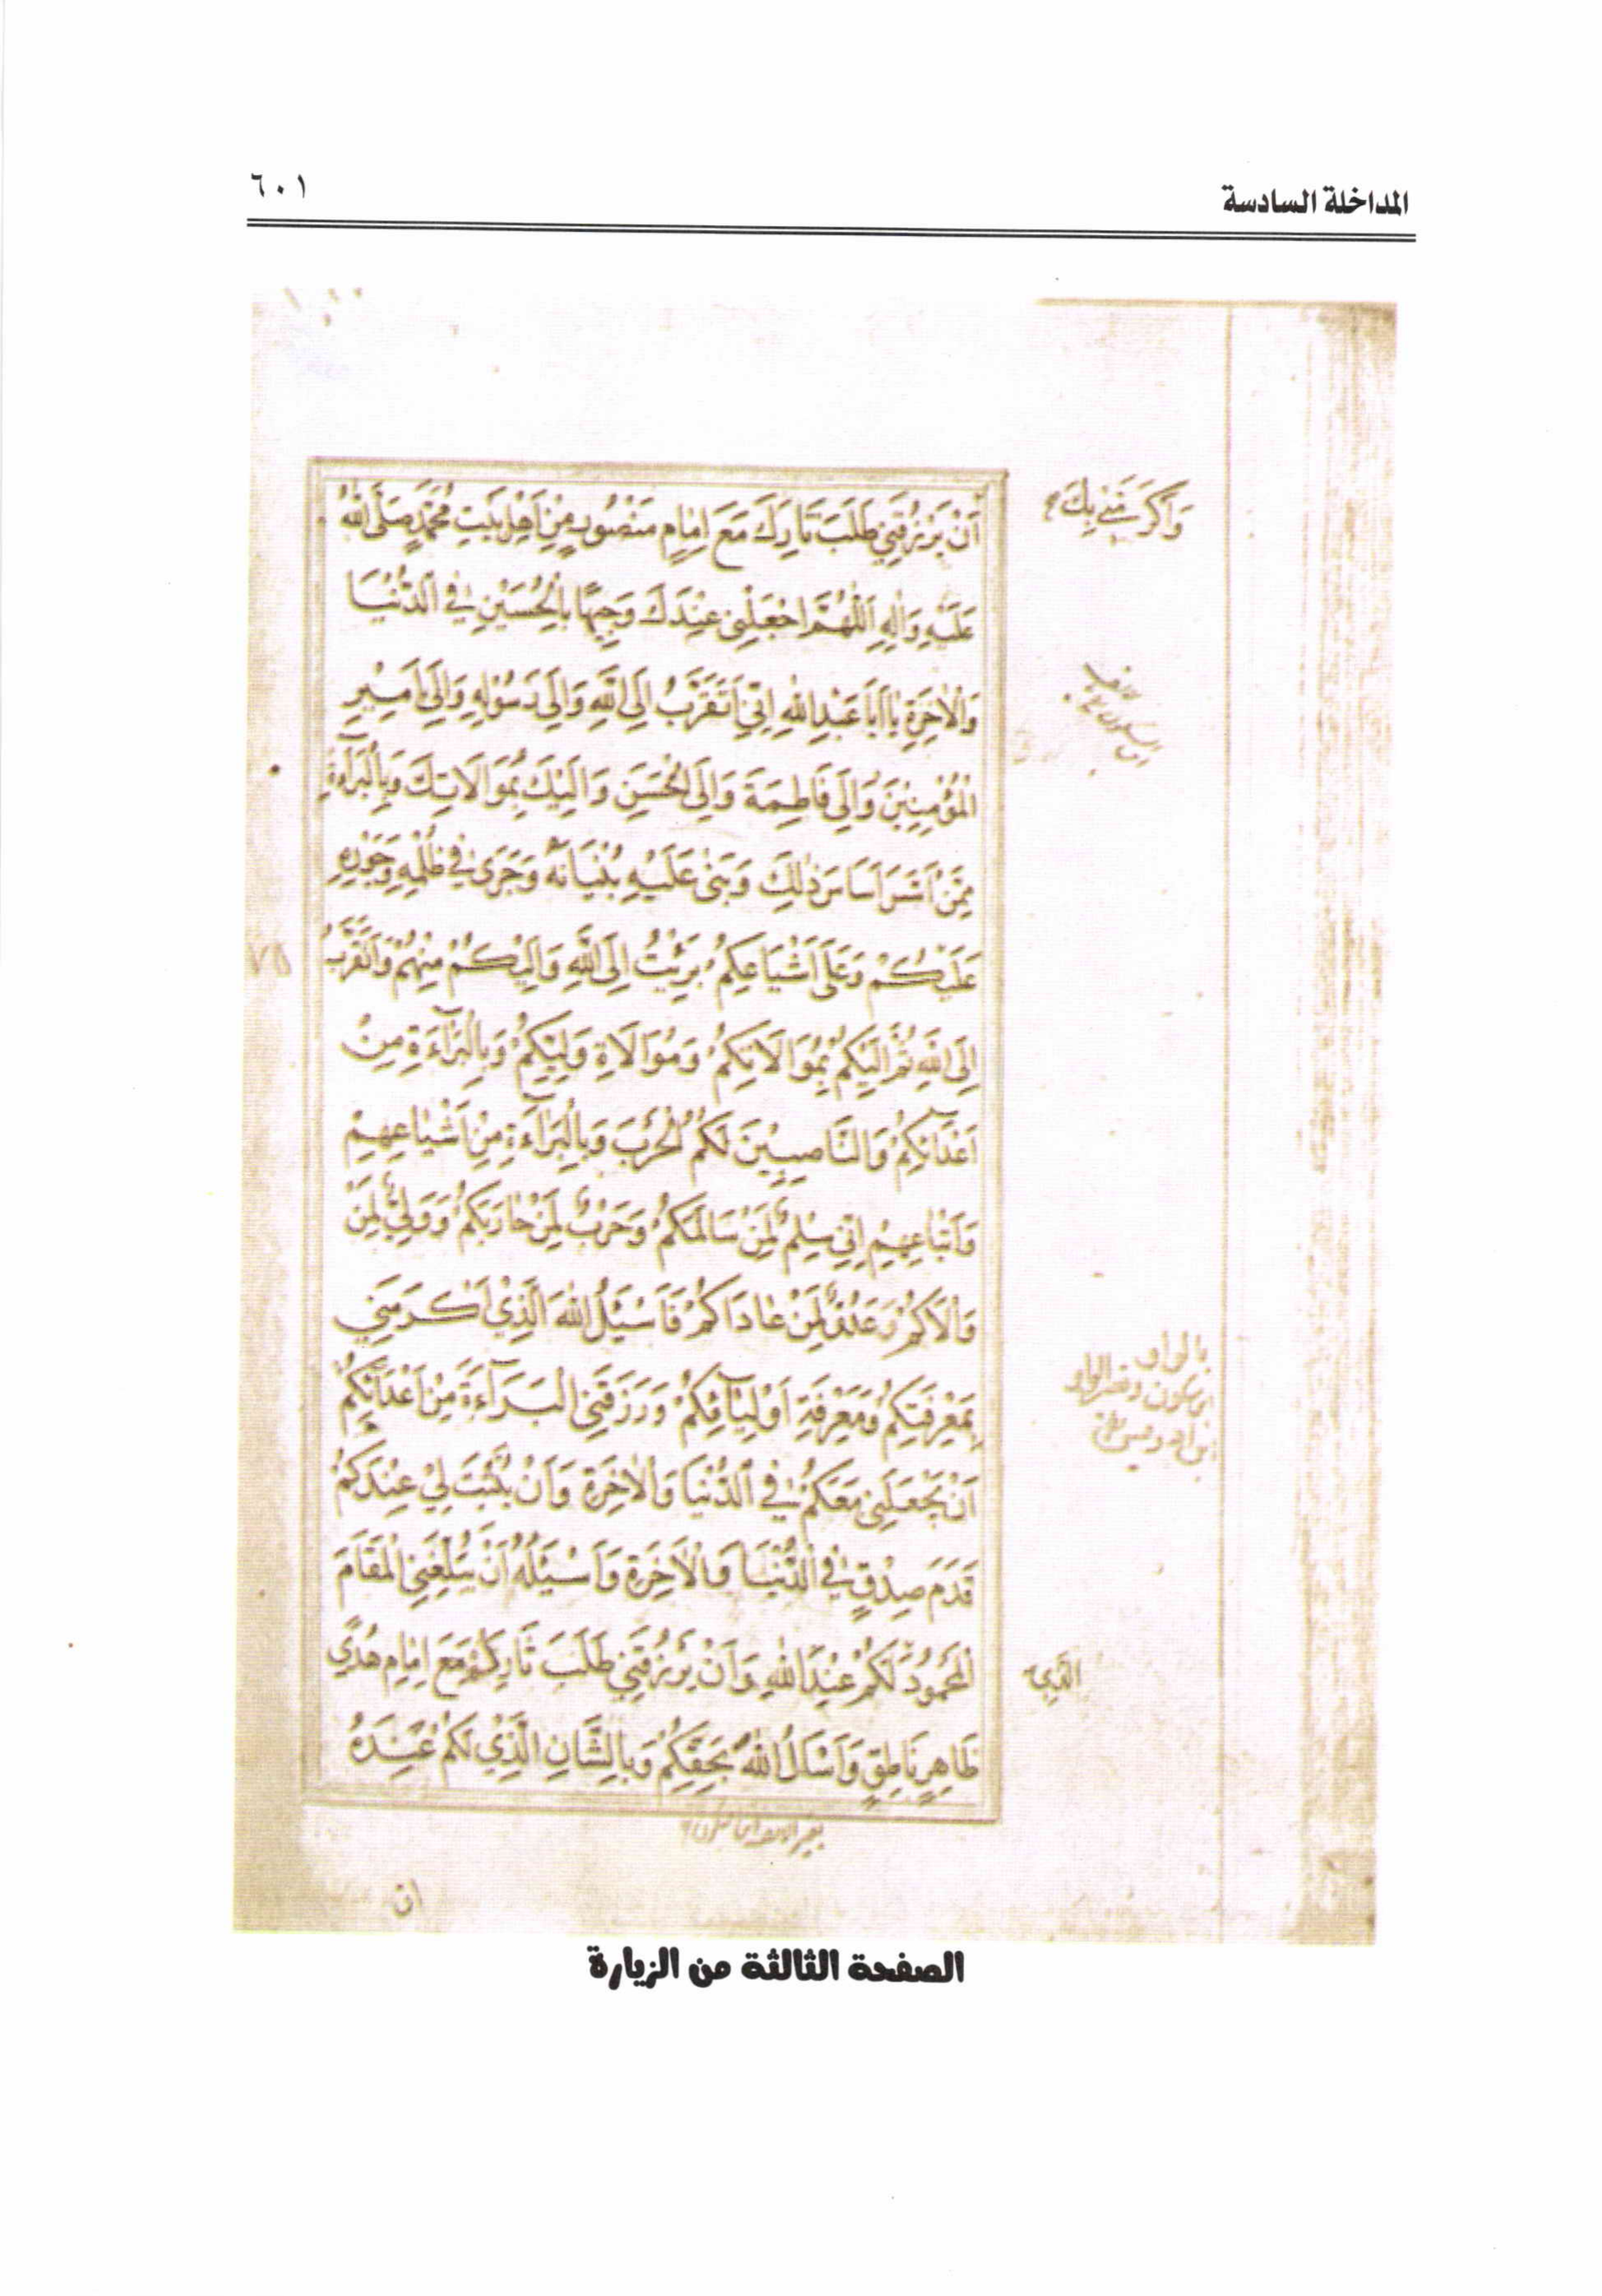 المداخلة السادسة
٦٠١
وَأَكْرَمَنِي بِكَ
أَنْ يَرْزُقَنِي طَلَبَ ثَارِكَ مَعَ إِمَامٍ مَنْصُورٍ مِنْ أَهْلِ بَيْتِ مُحَمَّدٍ صَلَّى اللهُ
عَلَيْهِ وَآلِهِ اَللّٰهُمَّ اجْعَلْنِي عِنْدَكَ وَجِيهًا بِالْحُسَيْنِ فِي الدُّنْيَا
وَالْاٰخِرَةِ يَا أَبَا عَبْدِ اللهِ اِنِّي اَتَقَرَّبُ اِلَى اللهِ وَاِلَى رَسُوْلِهِ وَاِلَى اَمِيْرِ
الْمُؤْمِنِيْنَ وَاِلَى فَاطِمَةَ وَاِلَى الْحَسَنِ وَاِلَيْكَ بِمُوَالَاتِكَ وَبِالْبَرَآءَةِ
مِمَّنْ اَسَّسَ اَسَاسَ ذٰلِكَ وَبَنٰى عَلَيْهِ بُنْيَانَهُ وَجَرٰى فِي ظُلْمِهِ وَجَوْرِهِ
عَلَيْكُمْ وَعَلَى اَشْيَاعِكُمْ بَرِئْتُ اِلَى اللهِ وَاِلَيْكُمْ مِنْهُمْ وَاَتَقَرَّبُ
اِلَى اللهِ ثُمَّ اِلَيْكُمْ بِمُوَالَاتِكُمْ وَمُوَالَاةِ وَلِيِّكُمْ وَبِالْبَرَآءَةِ مِنْ
اَعْدَآئِكُمْ وَالنَّاصِبِيْنَ لَكُمُ الْحَرْبَ وَبِالْبَرَآءَةِ مِنْ اَشْيَاعِهِمْ
وَاَتْبَاعِهِمْ اِنِّي سِلْمٌ لِمَنْ سَالَمَكُمْ وَحَرْبٌ لِمَنْ حَارَبَكُمْ وَوَلِيٌّ لِمَنْ
وَالَاكُمْ وَعَدُوٌّ لِمَنْ عَادَاكُمْ فَاَسْئَلُ اللهَ الَّذِيْ اَكْرَمَنِي
بِمَعْرِفَتِكُمْ وَمَعْرِفَةِ اَوْلِيَآئِكُمْ وَرَزَقَنِي الْبَرَآءَةَ مِنْ اَعْدَآئِكُمْ
اَنْ يَجْعَلَنِي مَعَكُمْ فِي الدُّنْيَا وَالْاٰخِرَةِ وَاَنْ يُثَبِّتَ لِيْ عِنْدَكُمْ
قَدَمَ صِدْقٍ فِي الدُّنْيَا وَالْاٰخِرَةِ وَاَسْئَلُهُ اَنْ يُبَلِّغَنِي الْمَقَامَ
الْمَحْمُوْدَ لَكُمْ عِنْدَ اللهِ وَاَنْ يَرْزُقَنِي طَلَبَ ثَارِكُمْ مَعَ اِمَامِ هُدًي
الَّذِي
ظَاهِرٍ نَاطِقٍ وَاَسْئَلُ اللهَ بِحَقِّكُمْ وَبِالشَّانِ الَّذِيْ لَكُمْ عِنْدَهُ
ان
الصفحة الثالثة من الزيارة